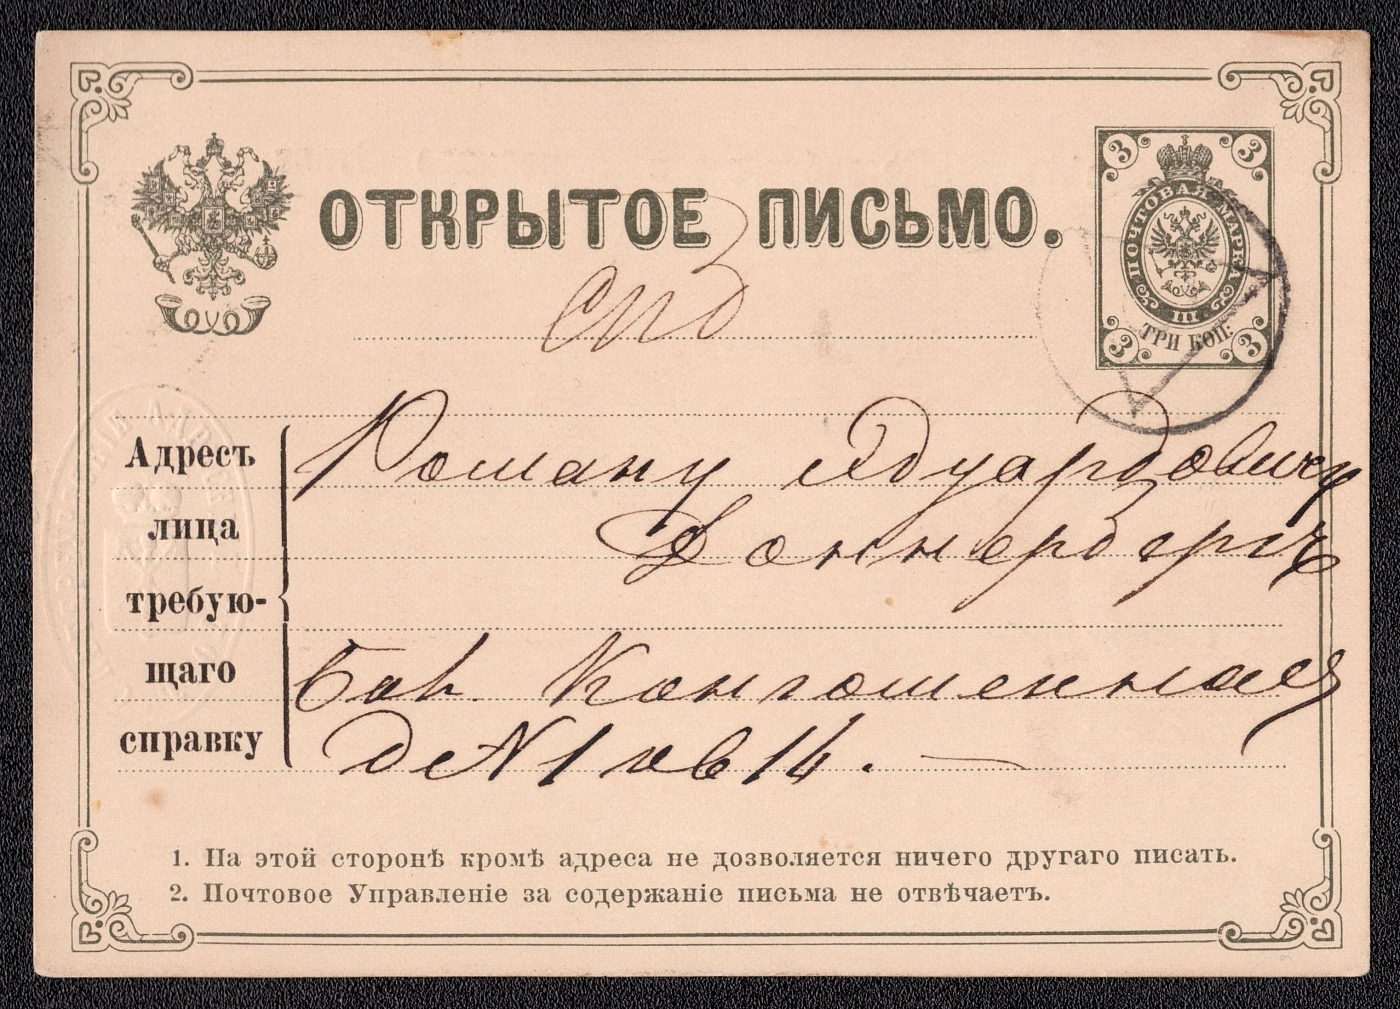 ОТКРЫТОЕ ПИСЬМО.
3 3
ПОЧТОВАЯ МАРКА
III
ТРИ КОП:
3 3
СПб
Адресъ
лица
требую-
щаго
справку
Роману Эдуардовичу
Доннербергъ
Бол. Конюшенная
д № 1 кв 14.
1. На этой сторонѣ кромѣ адреса не дозволяется ничего другаго писать.
2. Почтовое Управленіе за содержаніе письма не отвѣчаетъ.